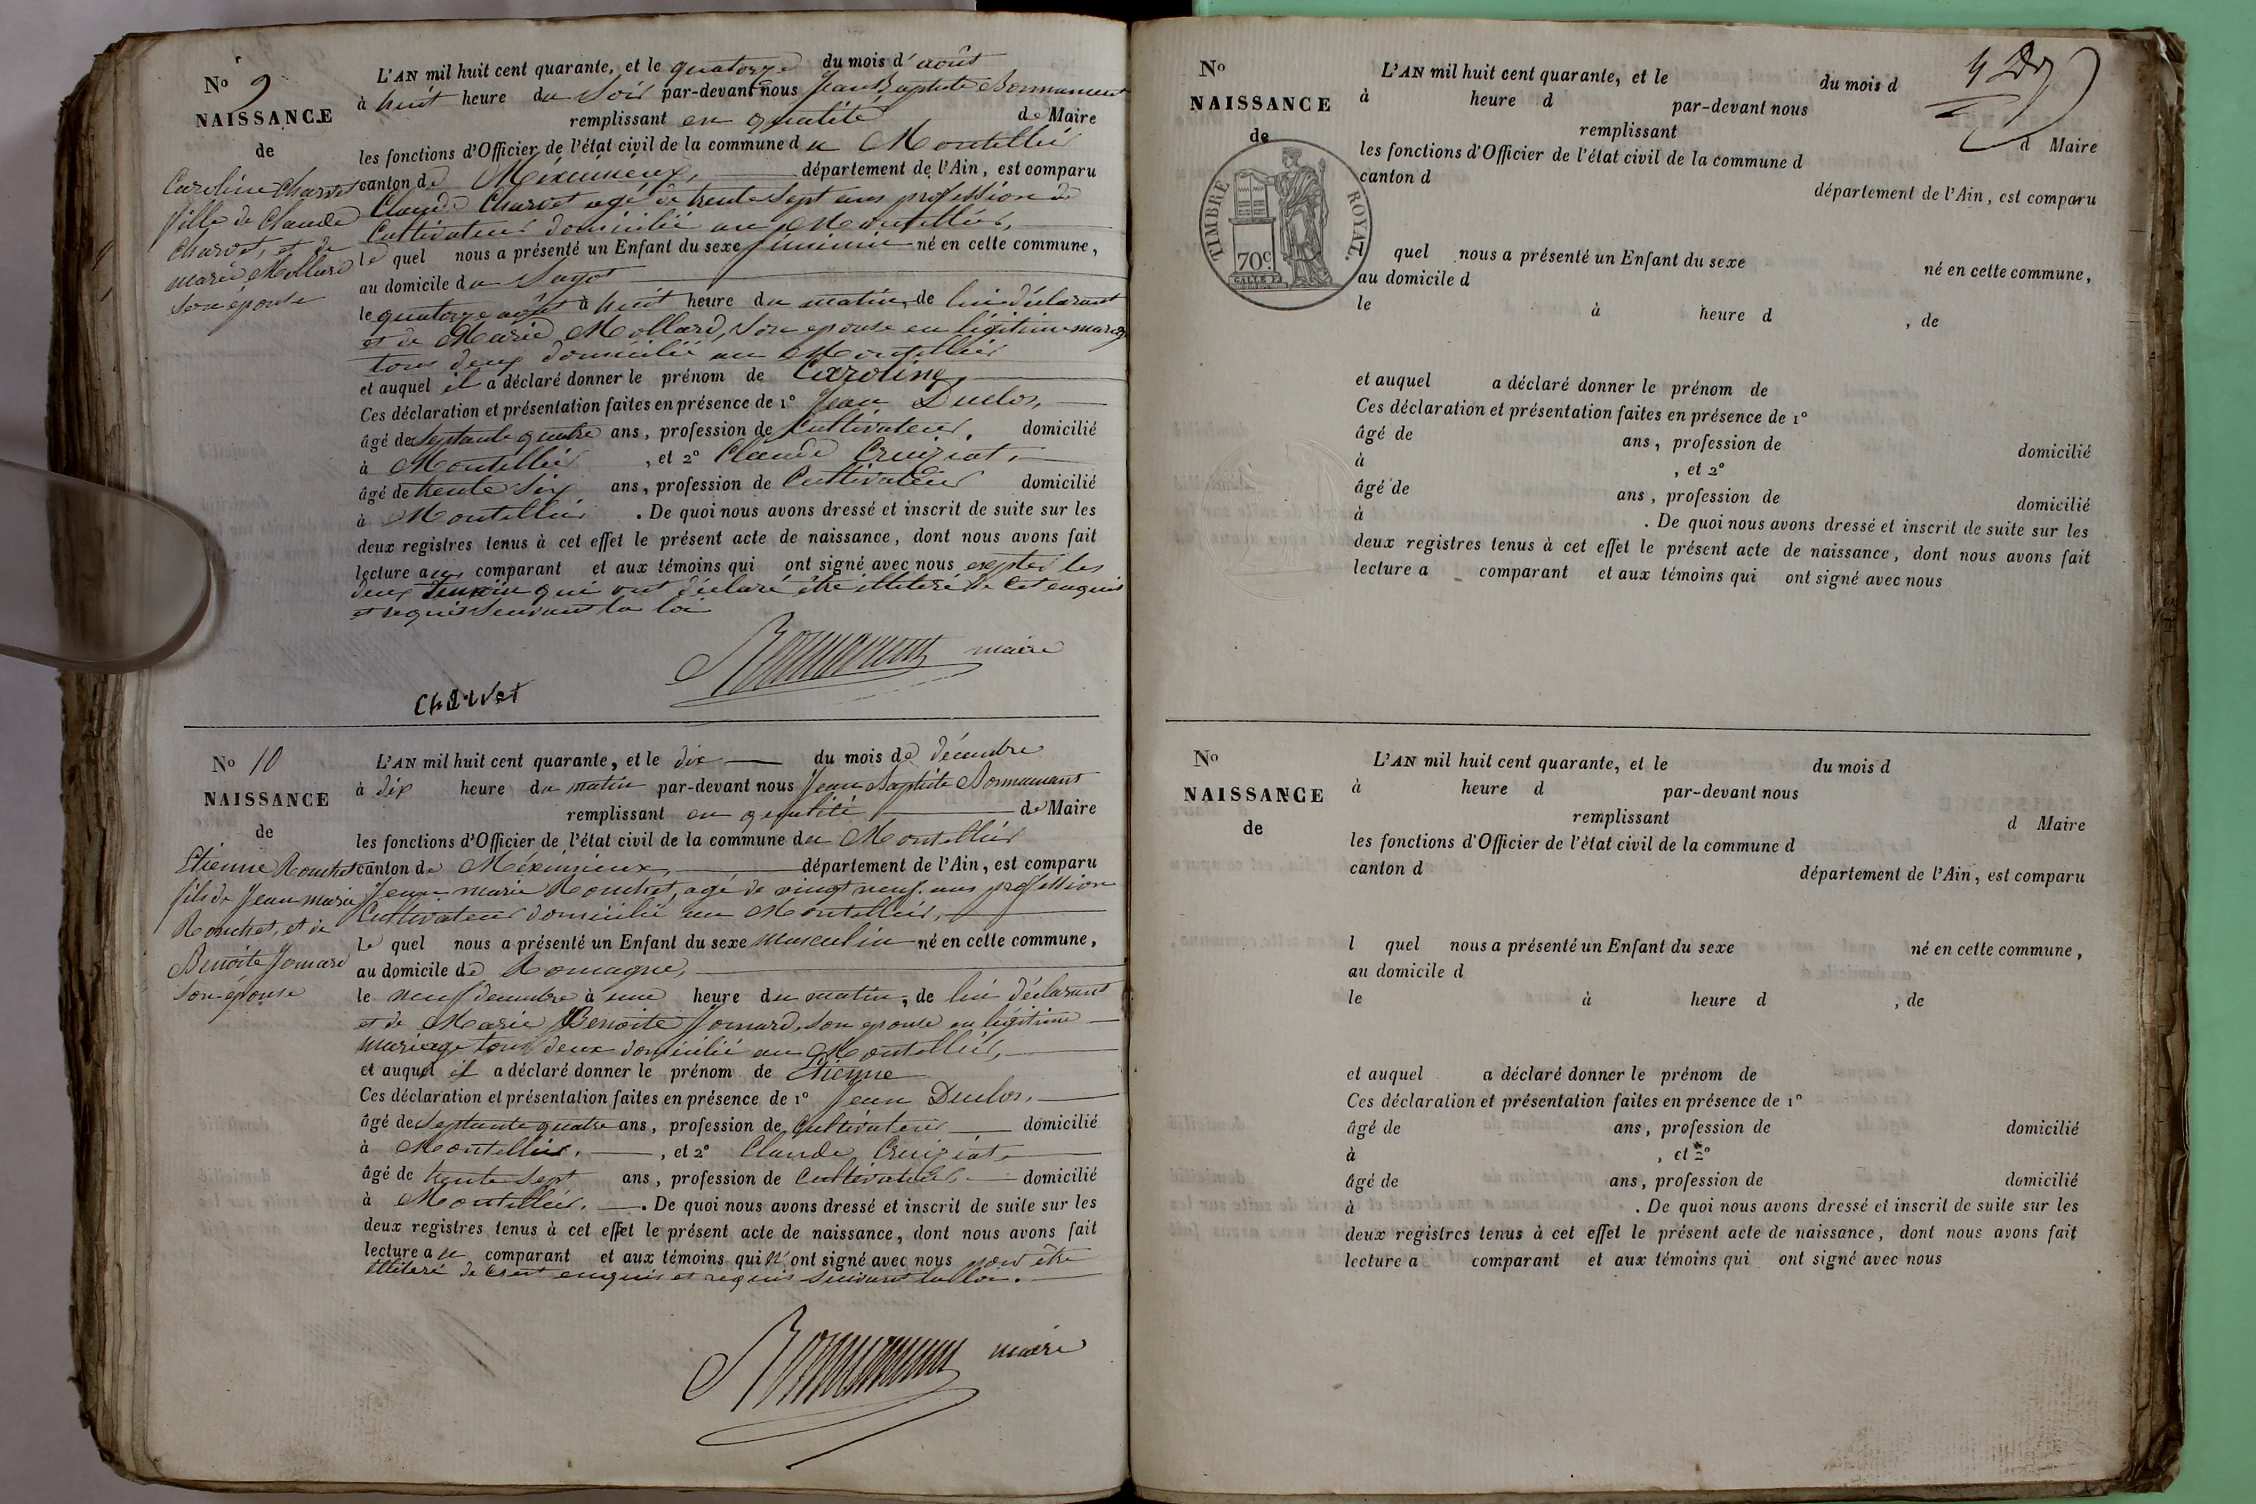 No 9
NAISSANCE
de
Caroline Charvet
fille de Claude
Charvet, et de
marie Mollard
son épouse
L'AN mil huit cent quarante, et le quatorze du mois d'août
à huit heure du soir par-devant nous Jean Baptiste Bonnamant
remplissant en qualité de Maire
les fonctions d'Officier de l'état civil de la commune du Montellier
canton de Méximieux, département de l'Ain, est comparu
Claude Charvet agé de trente sept ans profession de
Cultivateur domicilié au Montellier,
le quel nous a présenté un Enfant du sexe féminin né en cette commune,
au domicile du
le quatorze août à huit heure du matin, de lui déclarant
et de Marie Mollard, son epouse en légitime mariage
tous deux domicilié au Montellier
et auquel il a déclaré donner le prénom de Caroline,
Ces déclaration et présentation faites en présence de 1º Jean Duclos,
âgé de septante quatre ans, profession de Cultivateur, domicilié
à Montellier, et 2º Claude Cruiziat,
âgé de trente six ans, profession de Cultivateur domicilié
à Montellier. De quoi nous avons dressé et inscrit de suite sur les
deux registres tenus à cet effet le présent acte de naissance, dont nous avons fait
lecture aux comparant et aux témoins qui ont signé avec nous exepter les
deux temoin qui ont déclaré être illiteré de cet enquis
et requis suivant la loi
Bonnamant maire
Charvet
No 10
NAISSANCE
de
Etienne Ronchet
fils de Jean marie
Ronchet, et de
Benoite Jomard
son epouse
L'AN mil huit cent quarante, et le dix du mois de décembre
à dix heure du matin par-devant nous Jean Baptiste Bonnamant
remplissant en qualité de Maire
les fonctions d'Officier de l'état civil de la commune du Montellier
canton de Méximieux, département de l'Ain, est comparu
Jean marie Ronchet, agé de vingt neuf ans profession
Cultivateur domicilié au Montellier,
le quel nous a présenté un Enfant du sexe masculin né en cette commune,
au domicile de Romagne,
le neuf decembre à une heure du matin, de lui déclarant
et de Marie Benoite Jomard, son epouse en légitime
mariage tous deux domicilié au Montellier,
et auquel il a déclaré donner le prénom de Etienne
Ces déclaration et présentation faites en présence de 1º Jean Duclos,
âgé de septante quatre ans, profession de Cultivateur domicilié
à Montellier, et 2º Claude Cruiziat
âgé de trente sept ans, profession de Cultivateur domicilié
à Montellier. De quoi nous avons dressé et inscrit de suite sur les
deux registres tenus à cet effet le présent acte de naissance, dont nous avons fait
lecture au comparant et aux témoins qui n'ont signé avec nous pour être
illiteré de enquis et requis suivant la loi.
Bonnamant maire
No
NAISSANCE
de
TIMBRE ROYAL.
70c
L'AN mil huit cent quarante, et le du mois d
à heure d par-devant nous
remplissant d Maire
les fonctions d'Officier de l'état civil de la commune d
canton d département de l'Ain, est comparu
quel nous a présenté un Enfant du sexe né en cette commune,
au domicile d
le à heure d , de
et auquel a déclaré donner le prénom de
Ces déclaration et présentation faites en présence de 1º
âgé de ans, profession de domicilié
à , et 2º
âgé de ans, profession de domicilié
à . De quoi nous avons dressé et inscrit de suite sur les
deux registres tenus à cet effet le présent acte de naissance, dont nous avons fait
lecture a comparant et aux témoins qui ont signé avec nous
No
NAISSANCE
de
L'AN mil huit cent quarante, et le du mois d
à heure d par-devant nous
remplissant d Maire
les fonctions d'Officier de l'état civil de la commune d
canton d département de l'Ain, est comparu
l quel nous a présenté un Enfant du sexe né en cette commune,
au domicile d
le à heure d , de
et auquel a déclaré donner le prénom de
Ces déclaration et présentation faites en présence de 1º
âgé de ans, profession de domicilié
à , et 2º
âgé de ans, profession de domicilié
à . De quoi nous avons dressé et inscrit de suite sur les
deux registres tenus à cet effet le présent acte de naissance, dont nous avons fait
lecture a comparant et aux témoins qui ont signé avec nous